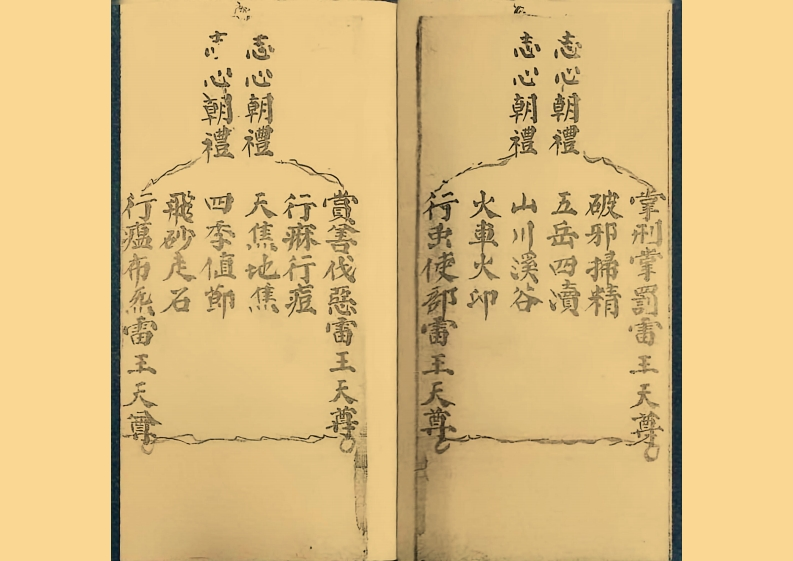 志心朝禮
志心朝禮
掌刑掌罰雷王天尊
破邪掃精
五岳四瀆
山川溪谷
火車火印
行虫使部雷王天尊
志心朝禮
志心朝禮
賞善伐惡雷王天尊
行痳行痘
天焦地焦
四季值節
飛砂走石
行瘟布炁雷王天尊